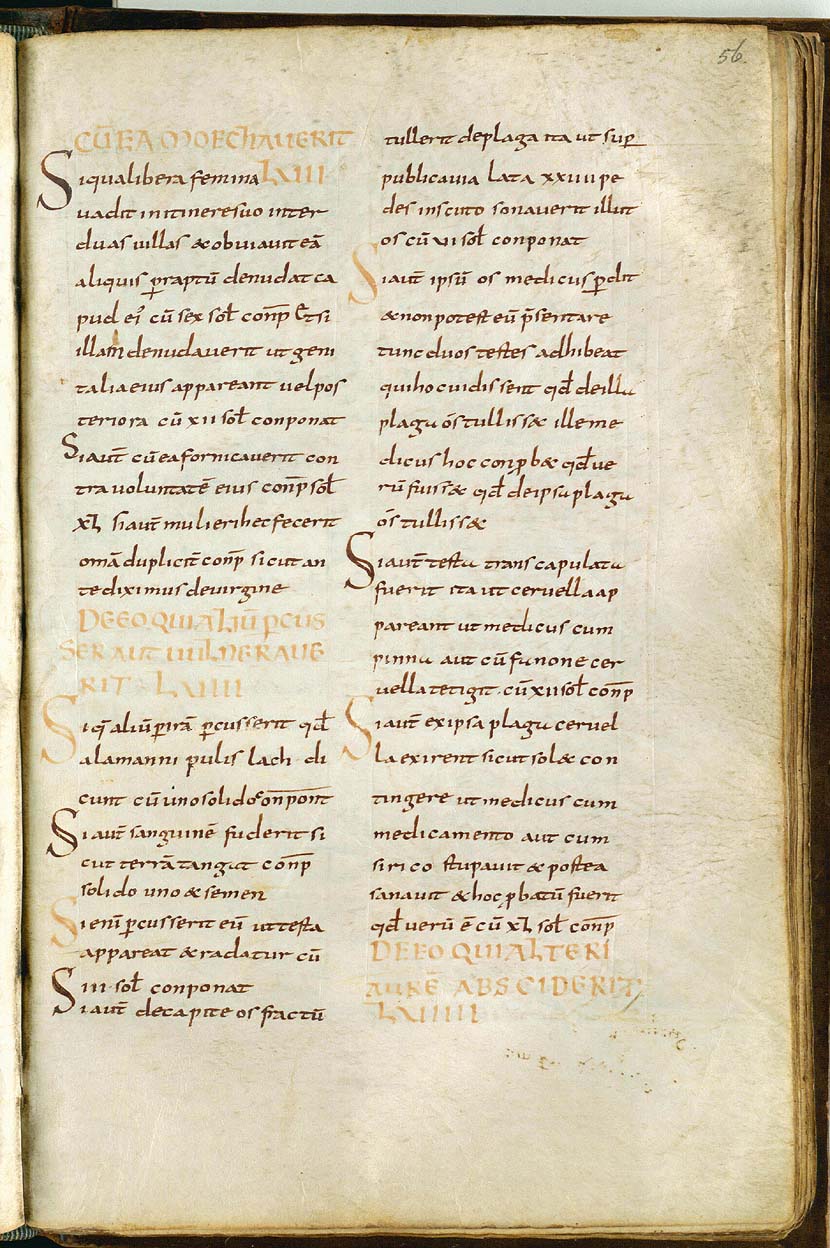 56
CŨ EA MOECHAUERIT
Siqua libera femina LXIII
uadit in itinere suo inter
duas uillas & obuiauit eã
aliquis praptũ denudat ca
pud ei' cũ sex sol conp Etsi
illam denudauerit ut geni
talia eius appareant uel pos
teriora cũ xii sol conponat
Siaut̃ cũ ea fornicauerit con
tra uoluntatẽ eius conp sol
xl siaut̃ mulieri hec fecerit
omã duplicit̃ conp sicut an
te diximus deuirgine
DE EO QUI ALIŨ PCUS
SER AUT UULNERAUE
RIT LXIIII
Siq̃ aliũ p irã pcusserit qđ
alamanni pulislach di
cunt cũ uno solido conponat
Siaut̃ sanguinẽ fuderit si
cut terrã tangat conp
solido uno & semen
Sienĩ pcusserit eũ ut testa
appareat & radatur cũ
iii sol conponat
Siaut̃ decapite os fractũ
tullerit deplaga ita ut sup
publica uia lata xxiiii pe
des in scuto sonauerit illut
os cũ xii sol conponat
Siaut̃ ipsũ os medicus pdit
& non potest eũ p̃sentare
tunc duos testes adhibeat
qui hoc uidissent qđ de illa
plaga os̃ tullissæ ille me
dicus hoc conp b& qđ ue
rũ fuiss& qđ de ipsa plaga
os̃ tulliss&
Siaut̃ testa transcapulata
fuerit ita ut ceruella ap
pareant ut medicus cum
pinna aut cũ fanone cer
uella tetigit cũ xii sol conp
Siaut̃ ex ipsa plaga ceruel
la exirent sicut sol& con
tingere ut medicus cum
medicamento aut cum
sirico stupauit & postea
sanauit & hoc pbatũ fuerit
qđ uerũ ẽ cũ xl sol conp
DE EO QUI ALTERI
AURẼ ABSCIDERIT
LXIIIII